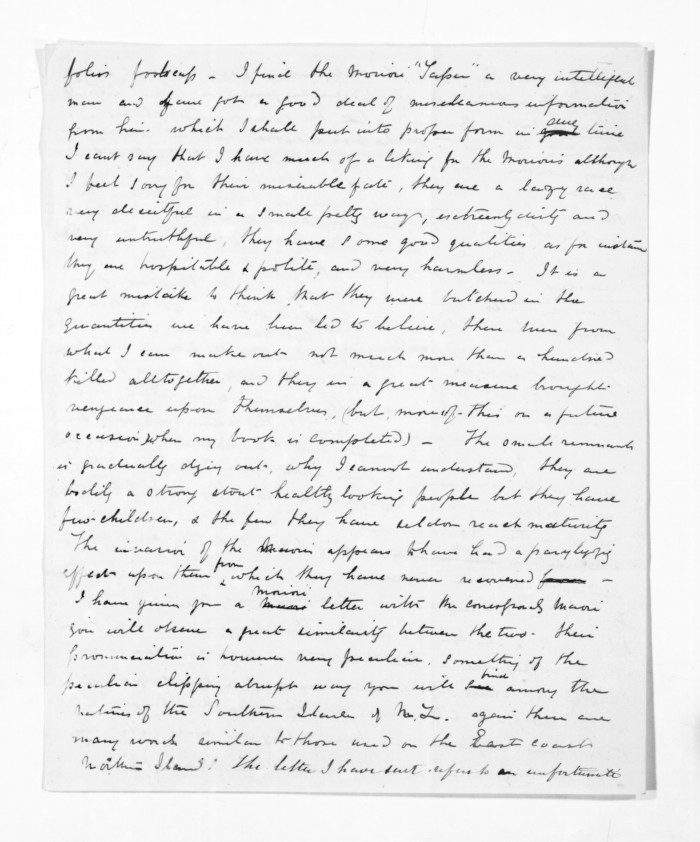 folios foolscap - I find the Moriori "Tapu" a very intelligent
man and have got a good deal of miscellaneous information
from him. which I shall put into proper form in due time
I cant say that I have much of a liking for the Morioris although
I feel sorry for their miserable fate, they are a lazy race
very deceitful in a small petty way, extremely dirty and
very untruthful, they have some good qualities as for instance
they are hospitable & polite, and very harmless - It is a
great mistake to think that they were butchered in the
quantities we have been led to believe, there were from
what I can make out not much more than a hundred
killed alltogether, and they in a great measure brought
vengeance upon themselves, (but, more of this on a future
occasion) when my book is completed) - The small remnant
is gradually dying out, why I cannot understand, they are
bodily a strong stout healthy looking people but they have
few children, & the few they have seldom reach maturity
The invasion of the Maoris appears to have had a paralyzing
effect upon them from which they have never recovered -
I have given you a moriori letter with the corresponding Maori
you will observe a great similarity between the two - their
pronunciation is however very peculiar, something of the
peculiar clipping abrupt way you will find among the
natives of the Southern Island of N.Z. again there are
many words similar to those used on the East coast
Northern Island: the letter I have sent refers to an unfortunate